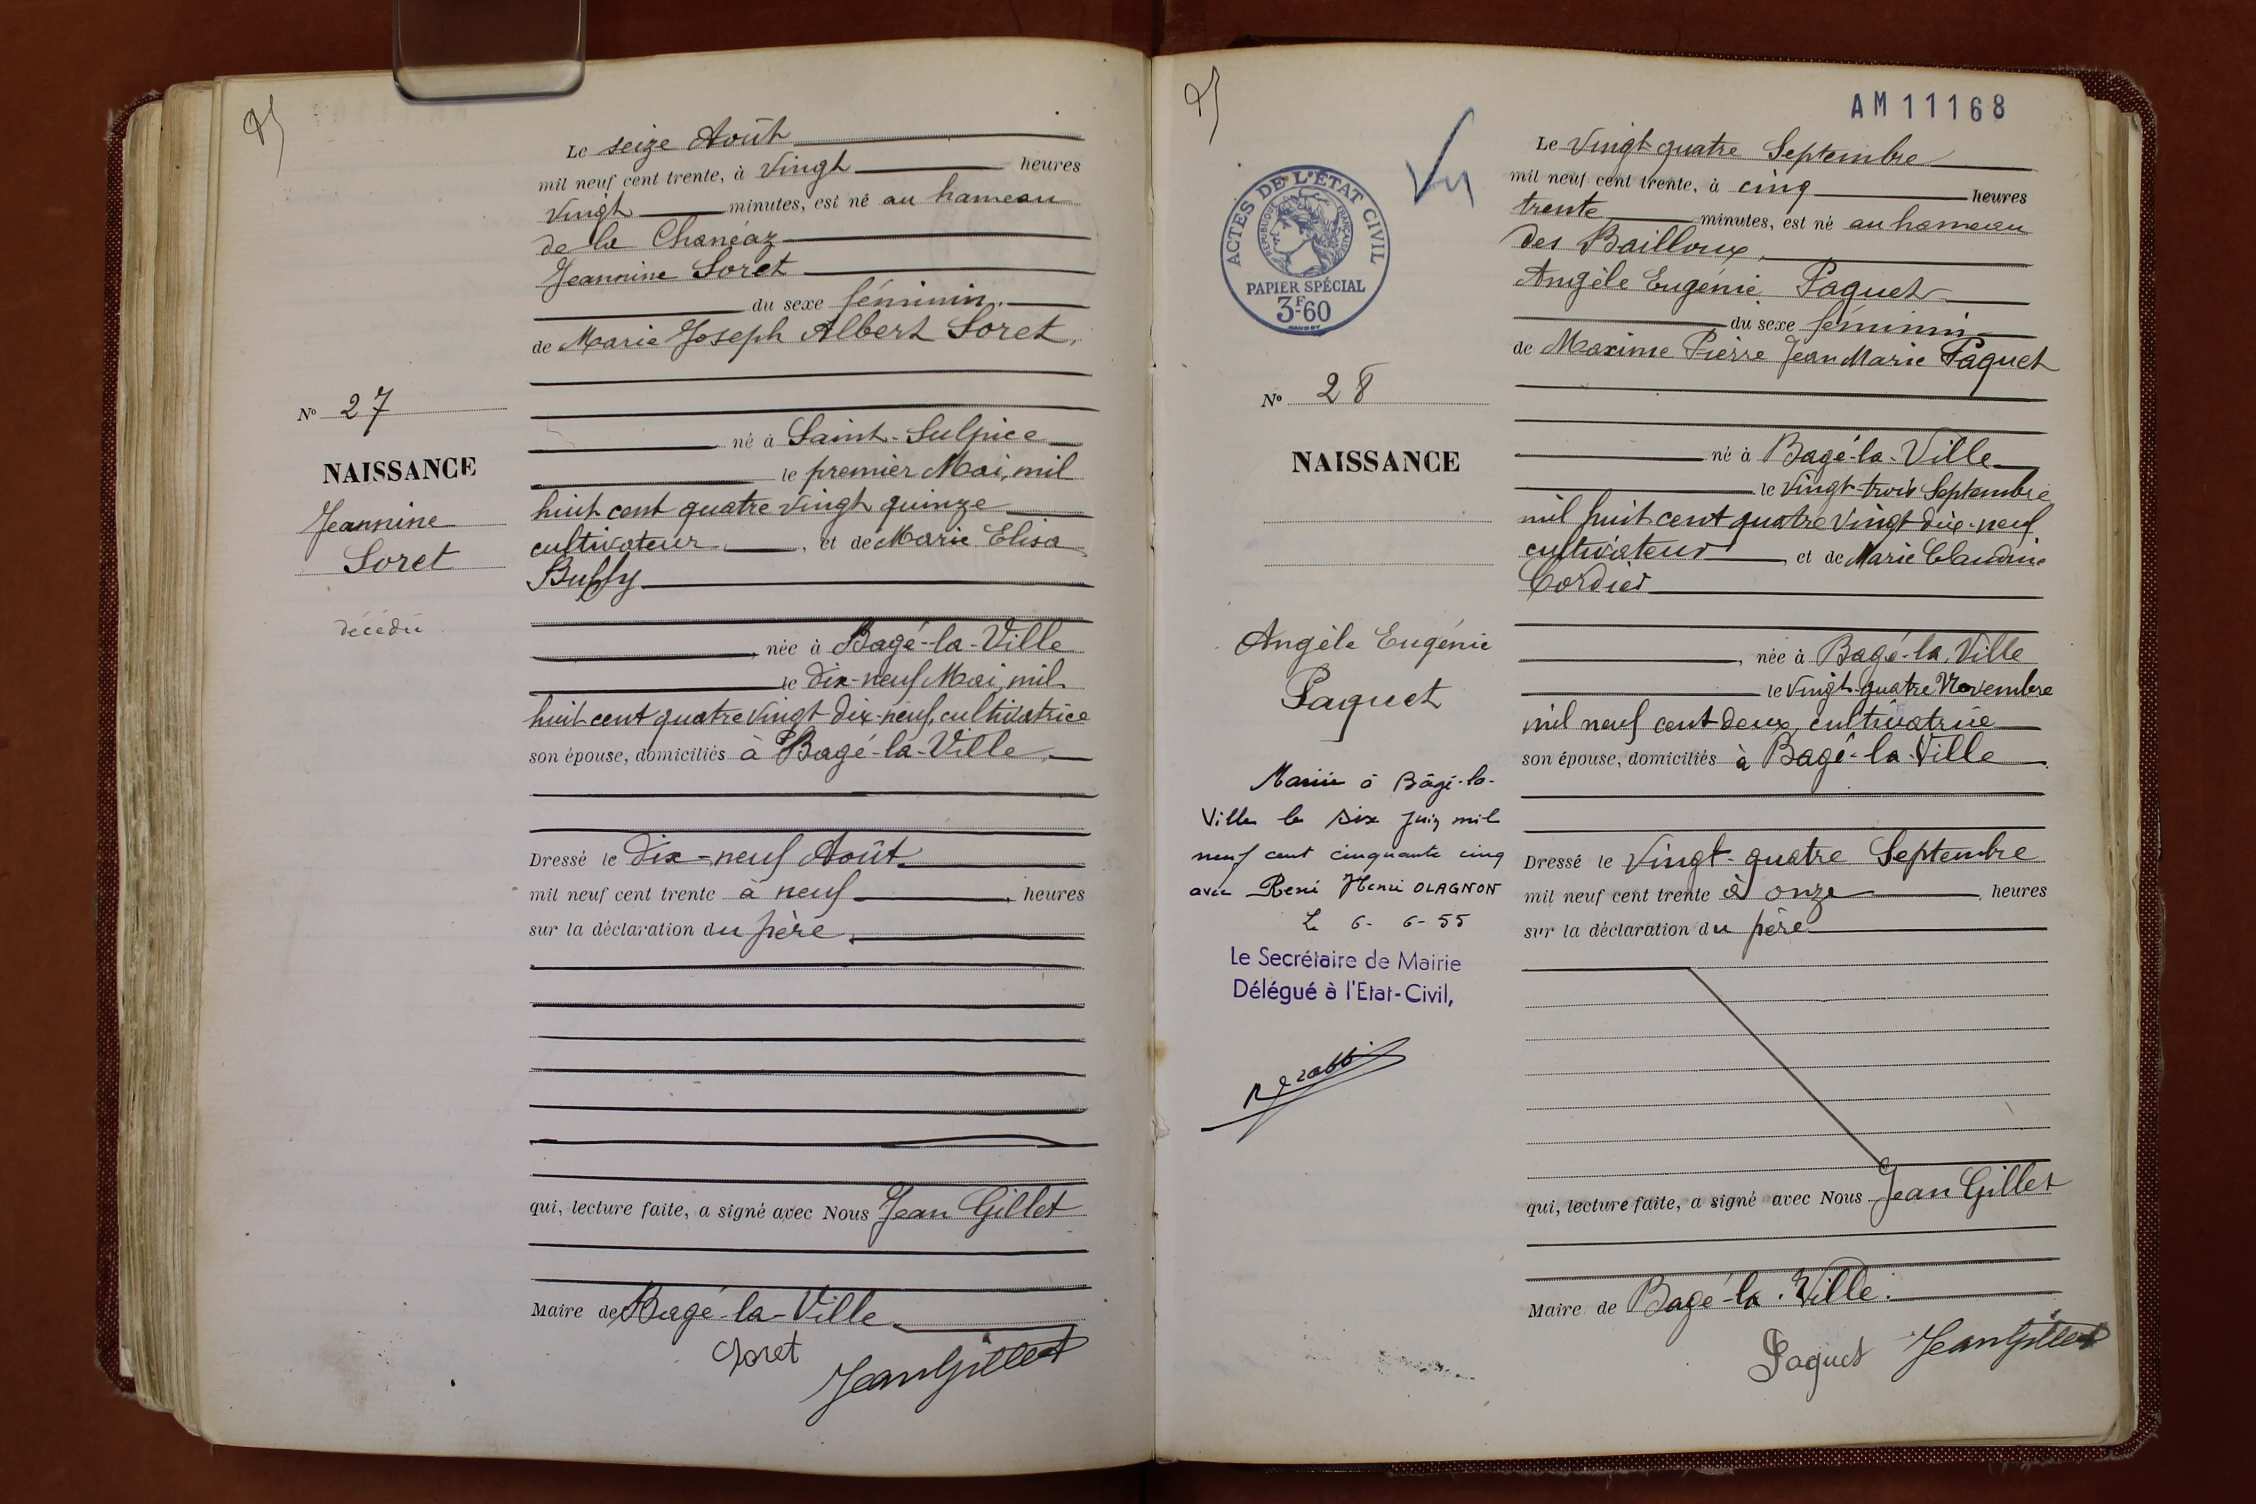 Le seize Août
mil neuf cent trente, à vingt heures
vingt minutes, est né au hameau
de la Chanéaz
Jeannine Loret
du sexe féminin.
de Marie Joseph Albert Loret,
né à Saint-Sulpice
le premier Mai, mil
huit cent quatre vingt quinze
cultivateur, et de Marie Elisa
Buffy
née à Bagé-la-Ville
le dix-neuf Mai, mil
huit cent quatre vingt dix-neuf, cultivatrice
son épouse, domiciliés à Bagé-la-Ville,
Dressé le dix-neuf Août
mil neuf cent trente à neuf heures
sur la déclaration du père,
qui, lecture faite, a signé avec Nous Jean Gillet
Maire de Bagé-la-Ville
Loret
Jean Gillet
No 27
NAISSANCE
Jeannine
Loret
décédée
AM11168
ACTES DE L'ÉTAT CIVIL
RÉPUBLIQUE FRANÇAISE
PAPIER SPÉCIAL
3F.60
Vu
No 28
NAISSANCE
Angèle Eugénie
Paquet
Mariée à Bâgé-la-
Ville le six Juin mil
neuf cent cinquante cinq
avec René Henri OLAGNON
Le 6-6-55
Le Secrétaire de Mairie
Délégué à l'Etat-Civil,
Le Vingt-quatre Septembre
mil neuf cent trente, à cinq heures
trente minutes, est né au hameau
des Bailloux,
Angèle Eugénie Paquet
du sexe féminin
de Maxime Pierre Jean Marie Paquet
né à Bagé-la-Ville
le vingt-trois Septembre
mil huit cent quatre vingt dix-neuf
cultivateur, et de Marie Claudine
Cordier
née à Bagé-la-Ville
le vingt-quatre Novembre
mil neuf cent deux, cultivatrice
son épouse, domiciliés à Bagé-la-Ville
Dressé le vingt-quatre Septembre
mil neuf cent trente à onze heures
sur la déclaration du père
qui, lecture faite, a signé avec Nous Jean Gillet
Maire de Bagé-la-Ville.
Paquet Jean Gillet